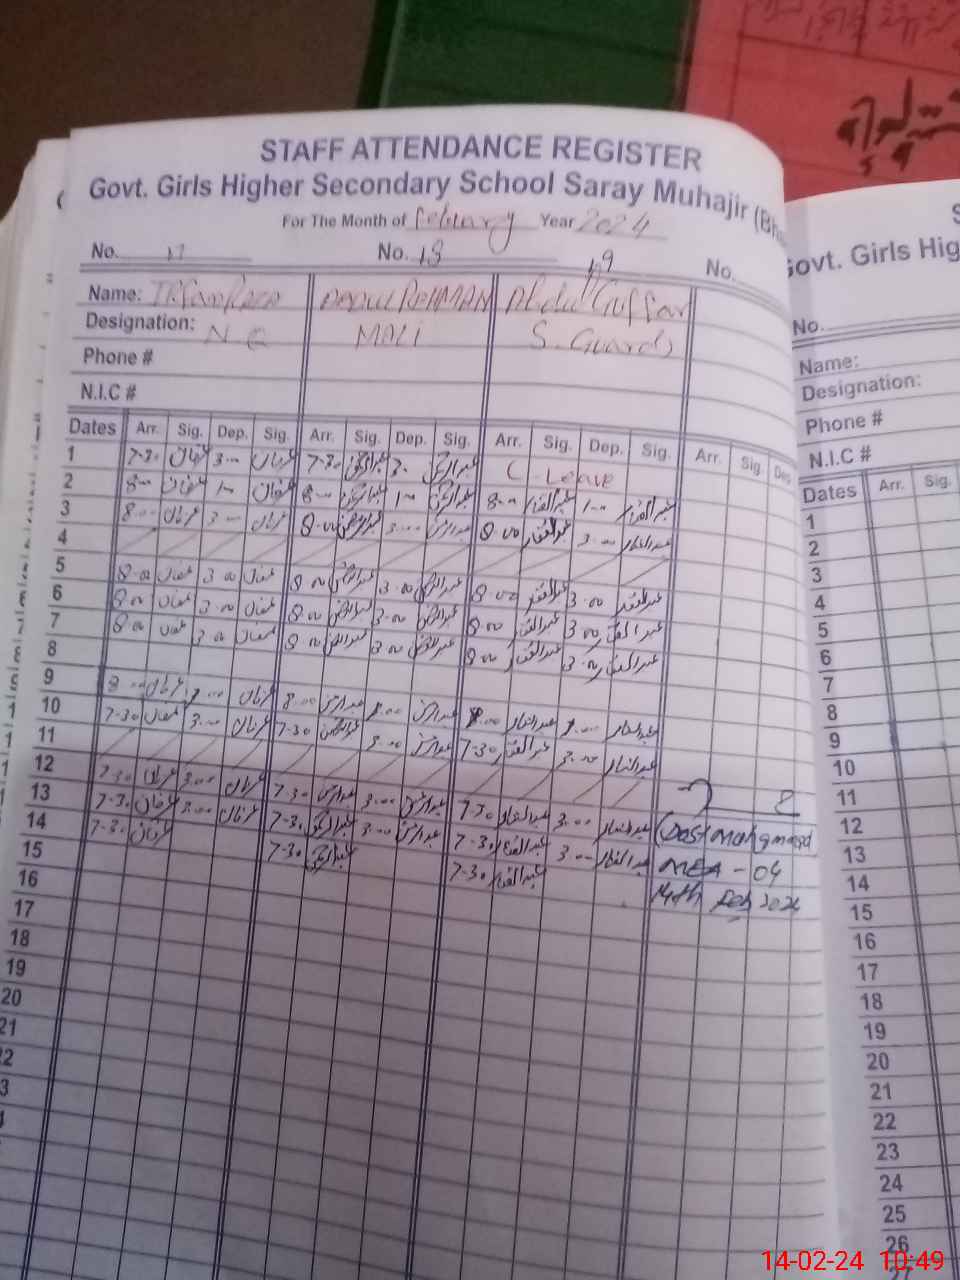 STAFF ATTENDANCE REGISTER
Govt. Girls Higher Secondary School Saray Muhajir (Bh
For The Month of February Year 2024
No. 17 No. 18 19 No.
Name: Irfan Raza ABDUL REHMAN Abdul Guffar
Designation: N Q MALI S. Guard
Phone #
N.I.C #
Dates Arr. Sig. Dep. Sig. Arr. Sig. Dep. Sig. Arr. Sig. Dep. Sig. Arr. Sig. Dep
1 7-30 عرفان 3-00 عرفان 7-30 عبدالرحمن 3- عبدالرحمن C-Leave
2 8-00 عرفان 1-00 عرفان 8-00 عبدالرحمن 1-00 عبدالرحمن 8-00 عبدالغفار 1-00 عبدالغفار
3 8-00 عرفان 3-00 عرفان 8-00 عبدالرحمن 3-00 عبدالرحمن 8-00 عبدالغفار 3-00 عبدالغفار
4
5 8-00 عرفان 3-00 عرفان 8-00 عبدالرحمن 3-00 عبدالرحمن 8-00 عبدالغفار 3-00 عبدالغفار
6 8-00 عرفان 3-00 عرفان 8-00 عبدالرحمن 3-00 عبدالرحمن 8-00 عبدالغفار 3-00 عبدالغفار
7 8-00 عرفان 3-00 عرفان 8-00 عبدالرحمن 3-00 عبدالرحمن 8-00 عبدالغفار 3-00 عبدالغفار
8
9 8-00 عرفان عرفان 8-00 عبدالرحمن عبدالرحمن عبدالغفار عبدالغفار
10 7-30 عرفان 3-00 عرفان 7-30 عبدالرحمن 3-00 عبدالرحمن 7-30 عبدالغفار 3-00 عبدالغفار
11
12 7-30 عرفان 3-00 عرفان 7-30 عبدالرحمن 3-00 عبدالرحمن 7-30 عبدالغفار 3-00 عبدالغفار
13 7-30 عرفان 3-00 عرفان 7-30 عبدالرحمن 3-00 عبدالرحمن 7-30 عبدالغفار 3-00 عبدالغفار
14 7-30 عرفان 7-30 عبدالرحمن 7-30 عبدالغفار
15
16
17
18
19
20
21
22
3
(Dost Mohammad
MEA - 04
14th Feb 2024
S
Govt. Girls Hig
No.
Name:
Designation:
Phone #
N.I.C #
Dates Arr. Sig.
1
2
3
4
5
6
7
8
9
10
11
12
13
14
15
16
17
18
19
20
21
22
23
24
25
26
14-02-24 10:49